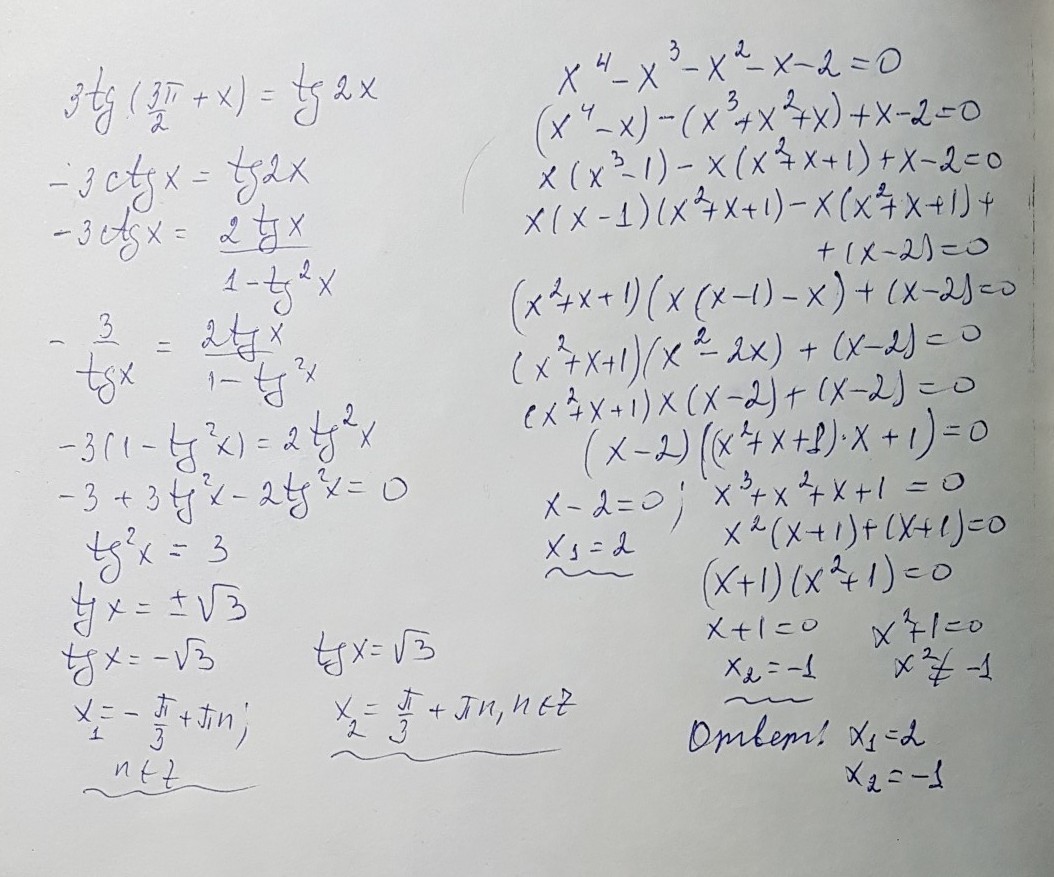 3tg(3π/2 + x) = tg2x
-3ctgx = tg2x
-3ctgx = 2tgx/(1-tg²x)
-3/tgx = 2tgx/(1-tg²x)
-3(1-tg²x) = 2tg²x
-3+3tg²x-2tg²x=0
tg²x = 3
tgx = ±√3
tgx = -√3 tgx = √3
x₁ = -π/3 + πn; x₂ = π/3 + πn, n∈Z
n∈Z
x⁴-x³-x²-x-2=0
(x⁴-x)-(x³+x²+x)+x-2=0
x(x³-1)-x(x²+x+1)+x-2=0
x(x-1)(x²+x+1)-x(x²+x+1)+
+(x-2)=0
(x²+x+1)(x(x-1)-x)+(x-2)=0
(x²+x+1)(x²-2x)+(x-2)=0
(x²+x+1)x(x-2)+(x-2)=0
(x-2)((x²+x+1)·x+1)=0
x-2=0; x³+x²+x+1=0
x₁=2 x²(x+1)+(x+1)=0
(x+1)(x²+1)=0
x+1=0 x²+1=0
x₂=-1 x²≠-1
Ответ: x₁=2
x₂=-1